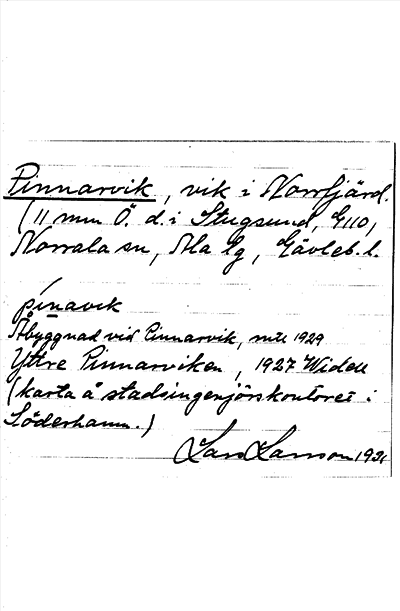 Pinnarvik, vik i Norrfjärd.
(11 mm Ö. d. i Stugsund, G110,
Norrala sn, Ala lg, Gävleb. l.
pinavik
Åbyggnad vid Pinnarvik, mtl 1929
Yttre Pinnarviken, 1927 Widell
(karta å stadsingenjörskontoret i
Söderhamn.)
Lars Larsson 1931